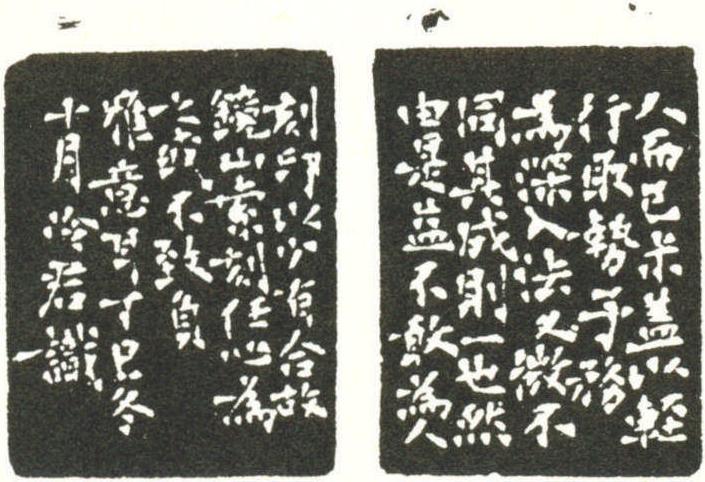 人而已蓋以輕
行取勢予務
為深入法又微不
同其成則一也然
由是益不敢為人
刻印以少有合故
鐃山索刻任心為
之或不致負
雅意耳丁巳冬
十月冷君識